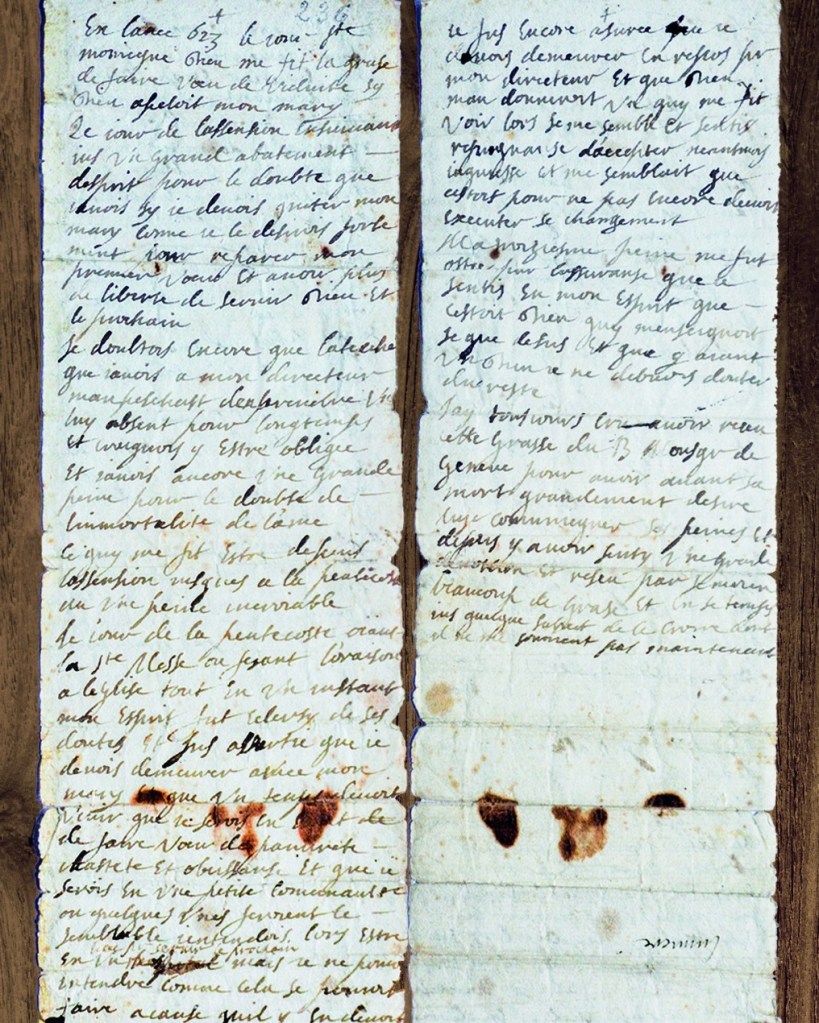 236
En lance 623 le jour ste
monicque Dieu me fit la grase
de faire voeu de viduite sy
Dieu apeloit mon mary
Le jour de lassention ensuivant
jus un grand abatement
desprit pour le doubte que
javois sy je devois quiter mon
mary come je le desirois forte
ment pour reparer mon
premier voeu Et avoir plus
de liberte de servir Dieu Et
le prochain
Je doubtois Encore que latache
que javois a mon directeur
manpeschast den prendre un
luy absent pour longtemps
Et creignois y Estre obligee
Et javois ancore une grande
peine pour le doubte de
limmortalite de lame
Ce quy me fit Estre depuis
lassension jusques a la pentecoste
en une peine incroiable
Le jour de la pentecoste oiant
la ste Messe ou fesant loraison
a leglise tout En un instant
mon Esprit fut eclercy de ses
doutes Et fus advertie que je
devois demeurer avece mon
mary Et que un temps devoit
venir que je serois En Estat de
de faire voeu de pauvrete
chastete Et obeissanse Et que je
serois En une petite comunaulte
ou quelques unes feroient le
semblable jentendois lors Estre
En un lieu pour secourir le prochain mais je ne pouvois
entendre comme cela se pouvoit
faire a cause quil y En devoit
je fus Encore asuree que je
devois demeurer En repos pour
mon directeur Et que Dieu
men donneroit un quy me fit
voir lors se me semble Et sentis
repugnanse daccepter neantmoins
jaquiesse et me semblait que
cestoit pour ne pas Encore devoir
Executer se changement
Ma troiziesme peine me fut
ostee par lassuranse que je
sentis En mon Esprit que
cestoit Dieu quy menseignoit
se que desus Et que y aiant
un Dieu je ne debvois douter
du reste
Jay tousjours cru avoir reseu
cette grasse du B Monsgr de
Geneve pour avoir avant sa
mort grandement desire
luy communiquer ses peines Et
depuis y avoir senty une grande
devotion Et reseu par se moien
beaucoup de grase Et En se temps
jus quelque subiect de le croire dont
il ne me souvient pas maintenant
lumiere